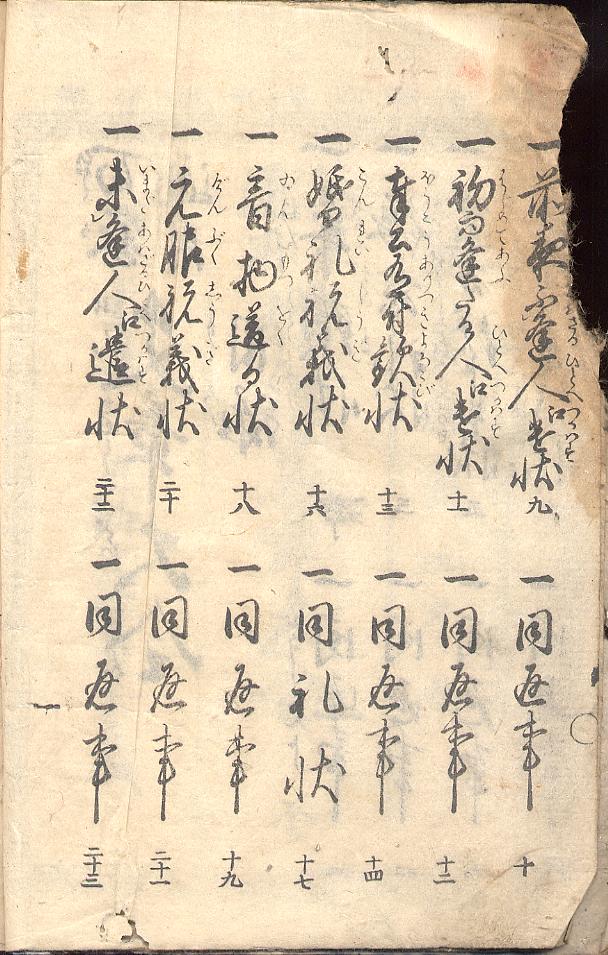 一 不逢人江遣状 九
一 同返事 十
一 初而逢たる人江遣状 十一
一 同返事 十二
一 奉公有付歓状 十三
一 同返事 十四
一 婚礼祝義状 十六
一 同礼状 十七
一 音物送る状 十八
一 同返事 十九
一 元服祝義状 二十
一 同返事 二十一
一 未逢人江遣状 二十二
一 同返事 二十三